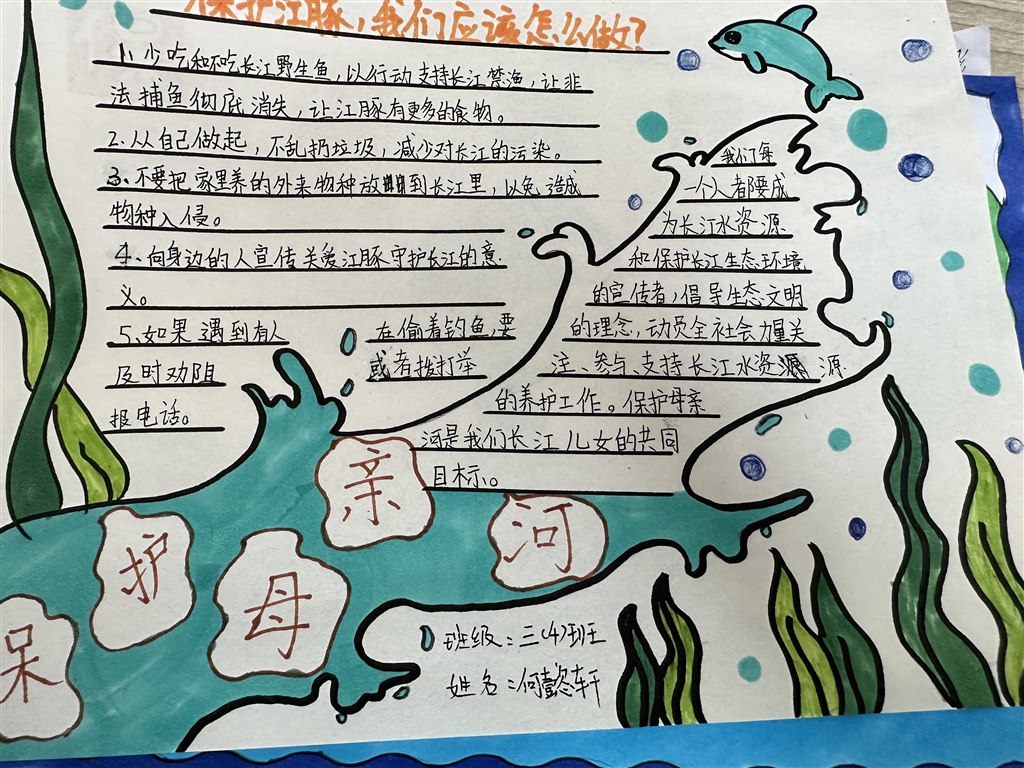 保护江豚，我们应该怎么做？
1、少吃和不吃长江野生鱼，以行动支持长江禁渔，让非
法捕鱼彻底消失，让江豚有更多的食物。
2、从自己做起，不乱扔垃圾，减少对长江的污染。
3、不要把家里养的外来物种放到长江里，以免造成
物种入侵。
4、向身边的人宣传关爱江豚守护长江的意
义。
5、如果遇到有人在偷着钓鱼，要
及时劝阻或者拨打举
报电话。
我们每
一个人都要成
为长江水资源
和保护长江生态环境
的宣传者，倡导生态文明
的理念，动员全社会力量关
注、参与、支持长江水资源源
的养护工作。保护母亲
河是我们长江儿女的共同
目标。
保护母亲河
班级：三（4）班
姓名：何懿轩